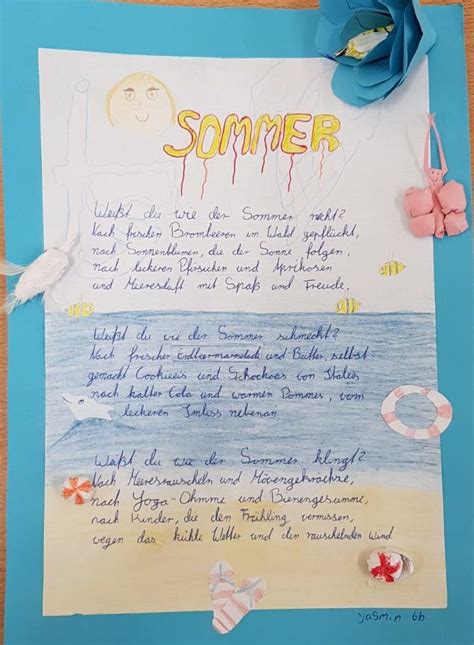 SOMMER
Weißt du wie der Sommer riecht?
Nach frischen Brombeeren im Wald gepflückt,
nach Sonnenblumen, die der Sonne folgen,
nach leckeren Pfirsichen und Aprikosen
und Meeresduft mit Spaß und Freude.
Weißt du wie der Sommer schmeckt?
Nach frischer Erdbeermarmelade und Butter, selbst
gemacht Cookieeis und Schockoeis von Italien
nach kalter Cola und warmen Pommes, vom
leckeren Imbiss nebenan
Weißt du wie der Sommer klingt?
Nach Meeresrauscheln und Mövengekrächze,
nach Yoga-Ohmme und Bienengesumme,
nach Kinder, die den Frühling vermissen,
wegen das kühle Wetter und den rauschelnden Wind
yasmin 6b